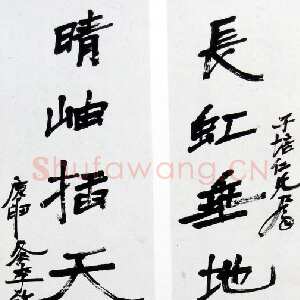 長虹垂地
子培仁兄屬
晴岫插天
庚申冬
Shufawang.CN